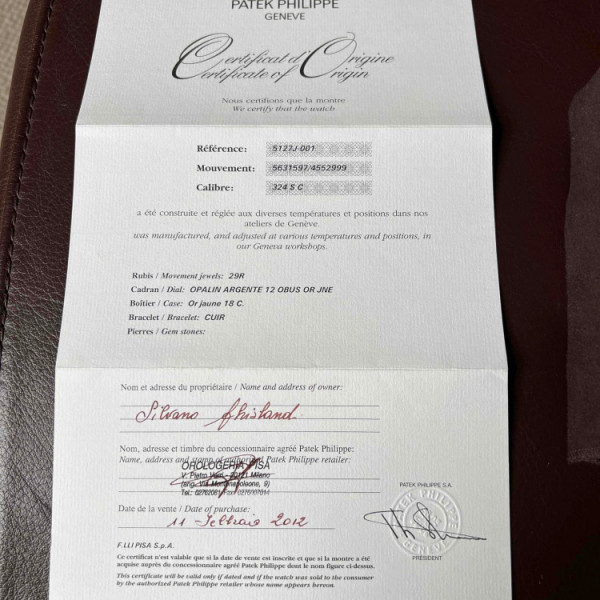 PATEK PHILIPPE
GENEVE
Certificat d'Origine
Certificate of Origin
Nous certifions que la montre
We certify that the watch
Référence: 5127J-001
Mouvement: 5631597/4552999
Calibre: 324 S C
a été construite et réglée aux diverses températures et positions dans nos
ateliers de Genève.
was manufactured, and adjusted at various temperatures and positions, in
our Geneva workshops.
Rubis / Movement jewels: 29R
Cadran / Dial: OPALIN ARGENTE 12 OBUS OR JNE
Boîtier / Case: Or jaune 18 C.
Bracelet / Bracelet: CUIR
Pierres / Gem stones:
Nom et adresse du propriétaire / Name and address of owner:
Silvano Ghisland
Nom, adresse et timbre du concessionnaire agréé Patek Philippe:
Name, address and stamp of authorized Patek Philippe retailer:
OROLOGERIA PISA
V. Pietro Verri - 20121 Milano
(ang. Via Montenapoleone, 9)
Date de la vente / Date of purchase:
11 - Febbraio 2012
F.LLI PISA S.p.A.
Ce certificat n'est valable que si la date de vente est inscrite et que si la montre a été
acquise auprès du concessionnaire agréé Patek Philippe dont le nom figure ci-dessus.
This certificate will be valid only if dated and if the watch was sold to the consumer
by the authorized Patek Philippe retailer whose name appears hereon.
PATEK PHILIPPE S.A.
PATEK PHILIPPE
GENEVE
PRÉSIDENT